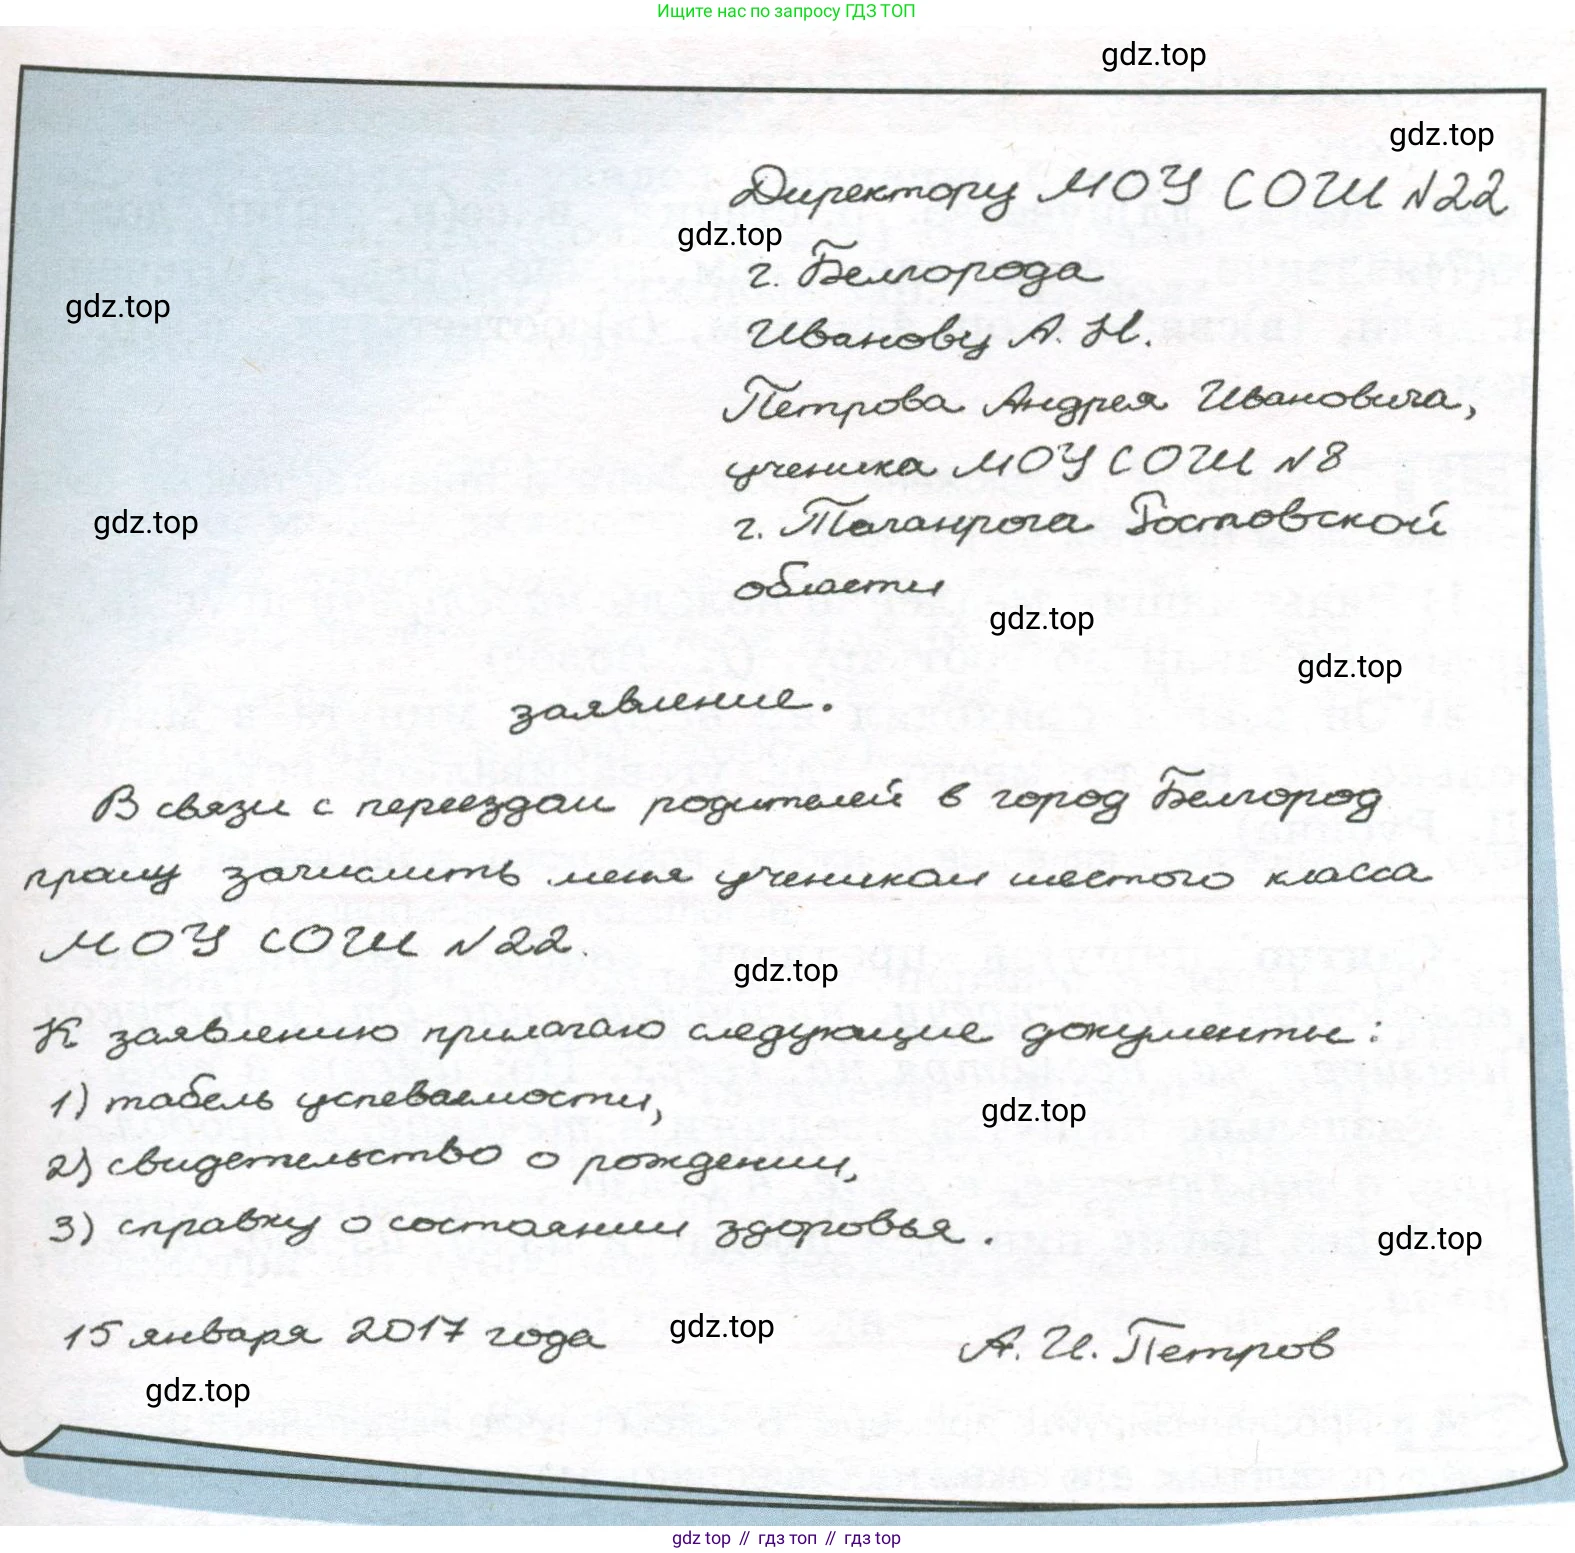 Ищите нас по запросу ГДЗ ТОП
gdz.top
gdz.top
Директору МОУ СОШ N22
gdz.top
г. Белгорода
gdz.top
Иванову А. Н.
Петрова Андрея Ивановича,
ученика МОУ СОШ N8
г. Таганрога Ростовской
gdz.top
области
gdz.top
gdz.top
заявление.
В связи с переездом родителей в город Белгород
прошу зачислить меня учеником шестого класса
МОУ СОШ N22.
gdz.top
К заявлению прилагаю следующие документы:
1) табель успеваемости,
gdz.top
2) свидетельство о рождении,
3) справку о состоянии здоровья.
gdz.top
15 января 2017 года
gdz.top
А. И. Петров
gdz.top
gdz top // гдз топ // гдз top